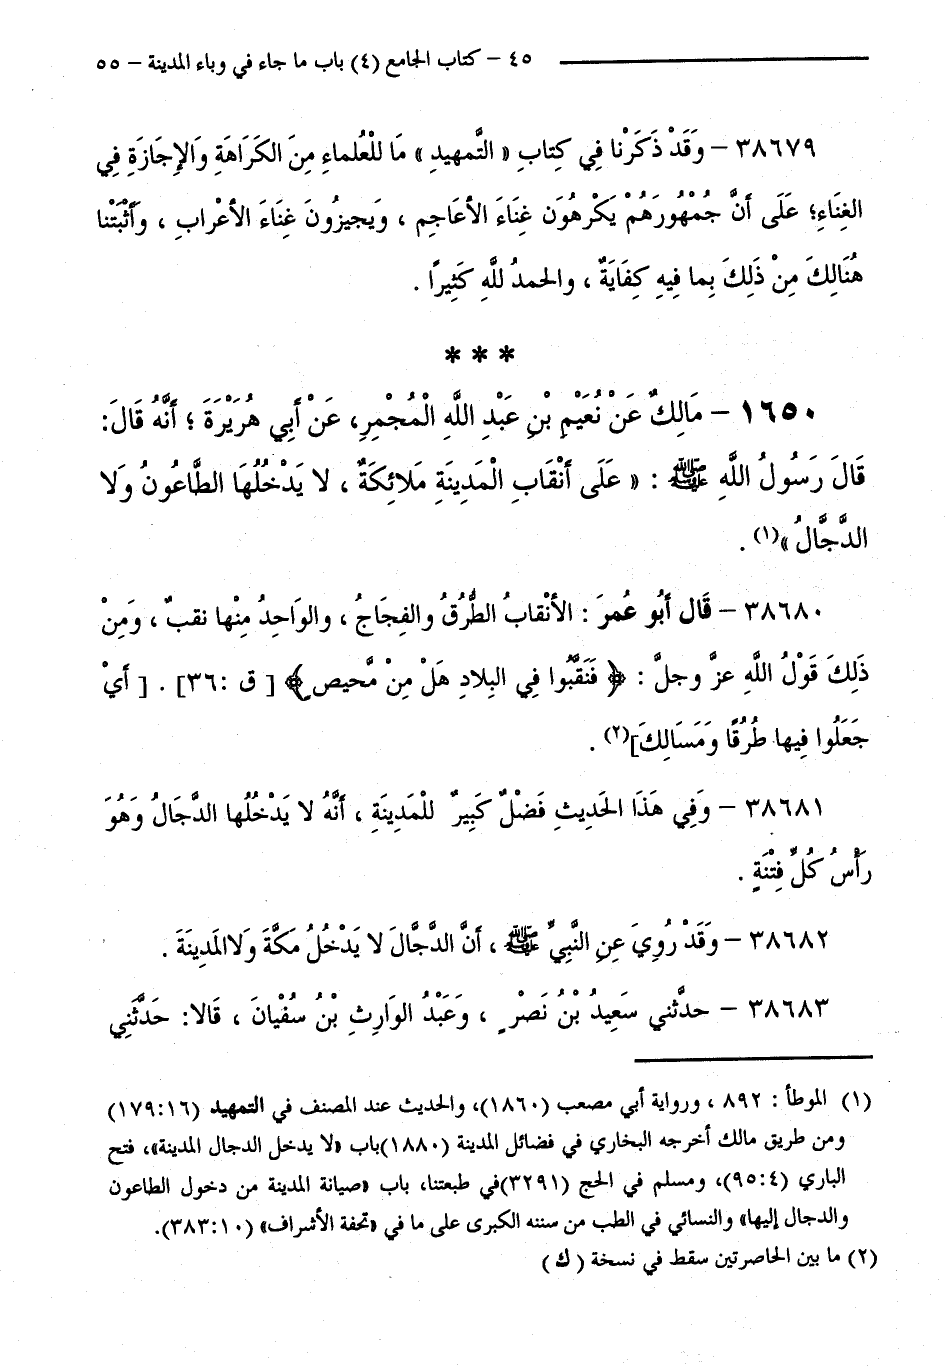 ٤٥ – كتاب الجامع (٤) باب ما جاء في وباء المدينة – ٥٥
٣٨٦٧٩ – وَقَدْ ذَكَرْنا فِي كِتابِ « التَّمهيدِ » مَا للْعُلماءِ مِنَ الكَرَاهَةِ وَالإِجَازَةِ فِي
الغِنَاءِ؛ عَلَى أَنَّ جُمْهُورَهُمْ يَكْرهُون غِنَاءَ الأعَاجم ، وَيجيزُونَ غِنَاءَ الأعْراب ، وَأَثْبَتْنا
هُنَالِكَ مِنْ ذَلِكَ بِما فِيهِ كِفَايَةٌ ، والحمدُ للَّهِ كَثِيرًا .
* * *
١٦٥٠ – مَالِكٌ عَنْ نُعَيْمِ بْنِ عَبْدِ اللَّهِ الْمُجْمِرِ، عَنْ أَبِي هُرَيْرَةَ ؛ أَنَّهُ قَالَ:
قَالَ رَسُولُ اللَّهِ ﷺ : « عَلَى أَنْقَابِ الْمَدِينَةِ مَلائِكَةٌ ، لا يَدْخُلُهَا الطَّاعُونُ وَلا
الدَّجَّالُ »(١) .
٣٨٦٨٠ – قَال أَبُو عُمرَ : الأنْقابُ الطُّرُقُ والفِجَاجُ ، والوَاحِدُ مِنْها نقبٌ ، وَمِنْ
ذَلِكَ قَوْلُ اللَّهِ عزَّ وجلَّ : ﴿ فَنَقَّبُوا فِي البِلادِ هَلْ مِنْ مَّحيصٍ ﴾ [ ق :٣٦] . [ أَيْ
جَعَلُوا فِيها طُرُقًا وَمَسَالِكَ](٢) .
٣٨٦٨١ – وَفِي هَذَا الحَدِيثِ فَضْلٌ كَبِيرٌ للْمَدِينَةِ ، أَنَّهُ لا يَدْخُلُها الدَّجَالُ وَهُوَ
رَأْسُ كُلِّ فِتْنَةٍ .
٣٨٦٨٢ – وَقَدْ رُوِيَ عَنِ النَّبِيِّ ﷺ ، أَنَّ الدَّجَّالَ لا يَدْخُلُ مَكَّةَ وَلاالمَدِينَةَ .
٣٨٦٨٣ – حدثَّني سَعِيدُ بْنُ نَصْرٍ ، وَعَبْدُ الوَارِثِ بْنُ سُفْيانَ ، قَالا: حَدَّثَنِي
(١) الموطأ : ٨٩٢ ، ورواية أبي مصعب (١٨٦٠)، والحديث عند المصنف في التمهيد (١٧٩:١٦)
ومن طريق مالك أخرجه البخاري في فضائل المدينة (١٨٨٠)باب «لا يدخل الدجال المدينة»، فتح
الباري (٩٥:٤)، ومسلم في الحج (٣٢٩١)في طبعتنا، باب «صيانة المدينة من دخول الطاعون
والدجال إليها» والنسائي في الطب من سننه الكبرى على ما في «تحفة الأشراف» (٣٨٣:١٠).
(٢) ما بين الحاصرتين سقط في نسخة ( ك )